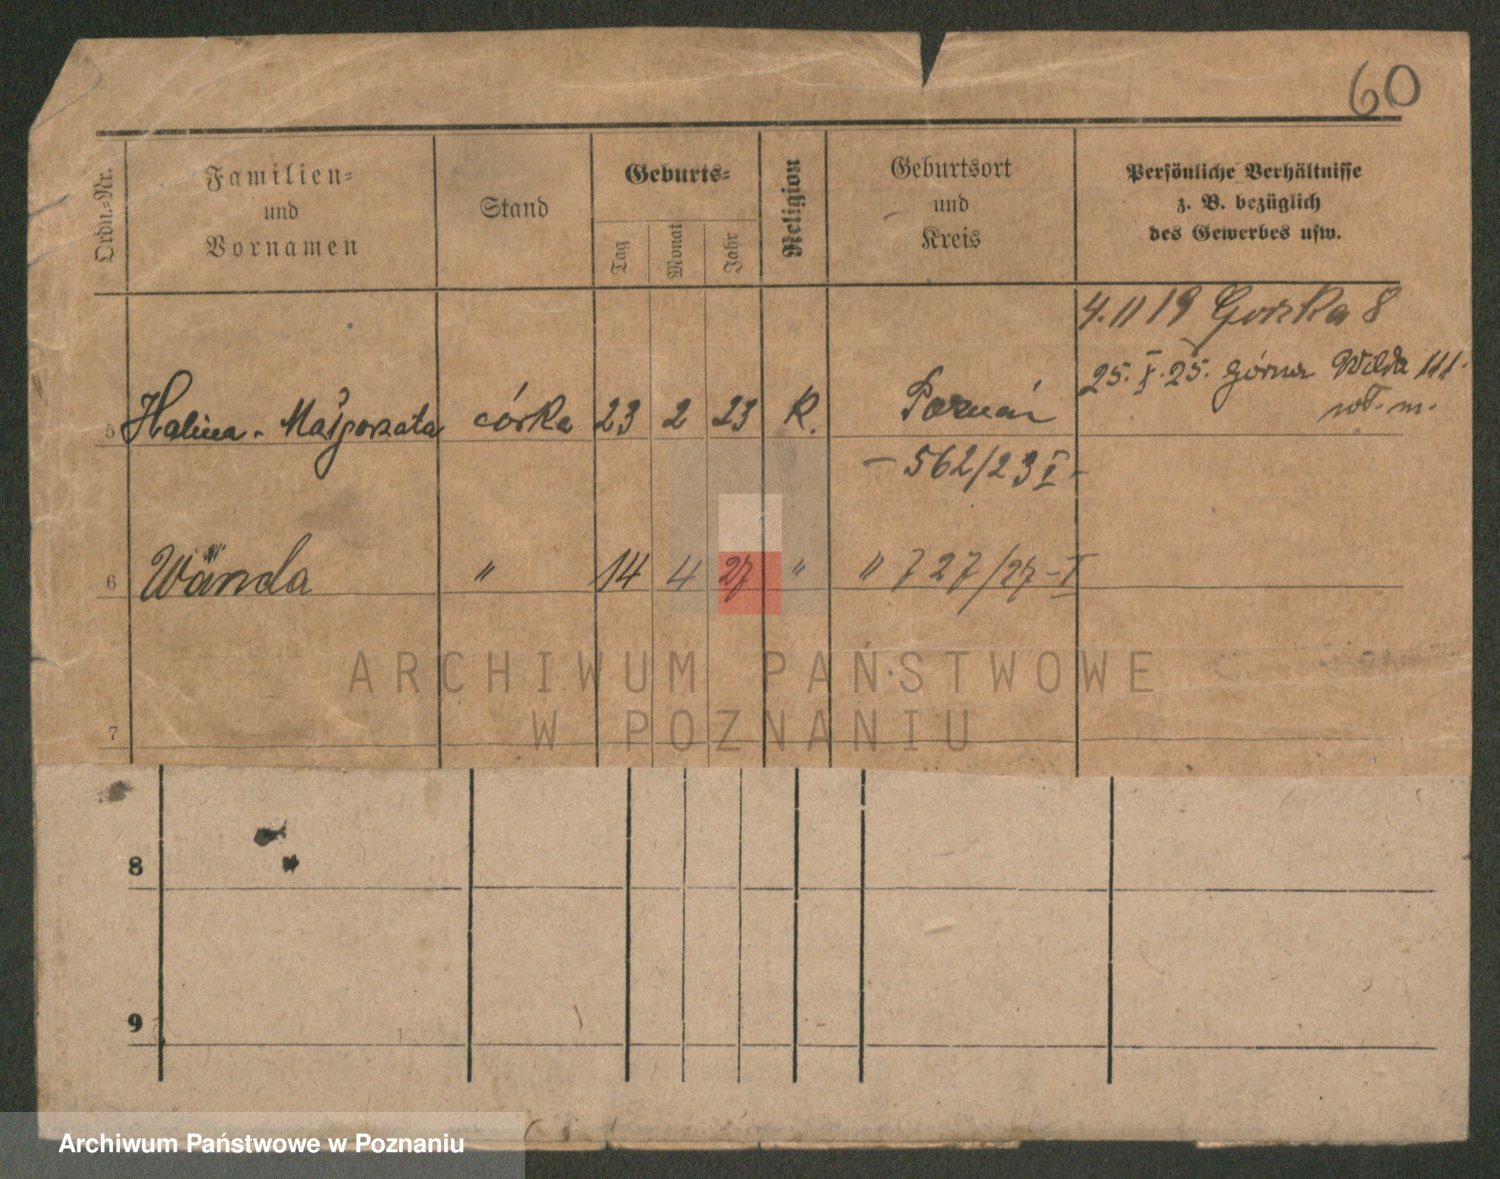 60
Ordn.-Nr.
Familien-
und
Vornamen
Stand
Geburts-
Tag
Monat
Jahr
Religion
Geburtsort
und
Kreis
Persönliche Verhältnisse
z. B. bezüglich
des Gewerbes usw.
4.11 19 Gorska 8
25. X. 25. Górna Wilda 111.
wł. m.
5 Halina - Małgorzata córka 23 2 23 K. Poznań
- 562/23 I -
6 Wanda " 14 4 27 " " 727/27 - I
ARCHIWUM PAŃSTWOWE
W POZNANIU
7
8
9
Archiwum Państwowe w Poznaniu